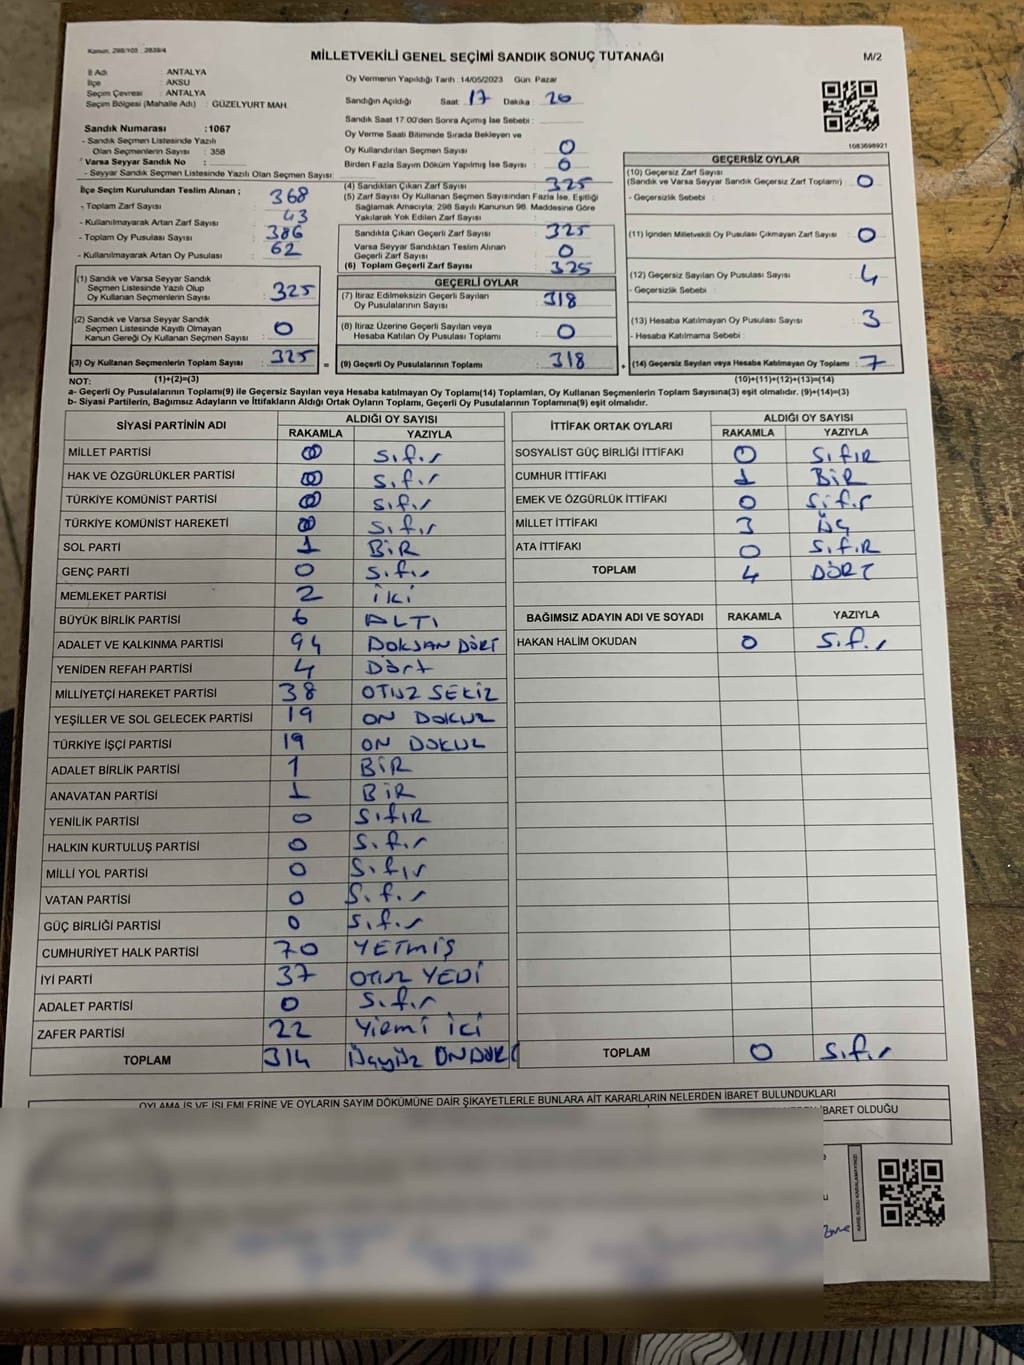 Kanun: 298/105 , 2839/4
MİLLETVEKİLİ GENEL SEÇİMİ SANDIK SONUÇ TUTANAĞI
M/2
İl Adı : ANTALYA
İlçe : AKSU
Seçim Çevresi : ANTALYA
Seçim Bölgesi (Mahalle Adı) : GÜZELYURT MAH.
Oy Vermenin Yapıldığı Tarih :14/05/2023 Gün Pazar
Sandığın Açıldığı Saat : 17 Dakika : 20
Sandık Saat 17:00'den Sonra Açılmış İse Sebebi :
Sandık Numarası :1067
- Sandık Seçmen Listesinde Yazılı
Olan Seçmenlerin Sayısı : 358
Varsa Seyyar Sandık No :
- Seyyar Sandık Seçmen Listesinde Yazılı Olan Seçmen Sayısı:
Oy Verme Saati Bitiminde Sırada Bekleyen ve
Oy Kullandırılan Seçmen Sayısı : 0
Birden Fazla Sayım Döküm Yapılmış İse Sayısı : 0
1083698921
İlçe Seçim Kurulundan Teslim Alınan ;
- Toplam Zarf Sayısı : 368
- Kullanılmayarak Artan Zarf Sayısı : 43
- Toplam Oy Pusulası Sayısı : 386
- Kullanılmayarak Artan Oy Pusulası : 62
(1) Sandık ve Varsa Seyyar Sandık
Seçmen Listesinde Yazılı Olup
Oy Kullanan Seçmenlerin Sayısı : 325
(2) Sandık ve Varsa Seyyar Sandık
Seçmen Listesinde Kayıtlı Olmayan
Kanun Gereği Oy Kullanan Seçmen Sayısı : 0
(3) Oy Kullanan Seçmenlerin Toplam Sayısı : 325 =
(4) Sandıktan Çıkan Zarf Sayısı : 325
(5) Zarf Sayısı Oy Kullanan Seçmen Sayısından Fazla İse, Eşitliği
Sağlamak Amacıyla; 298 Sayılı Kanunun 98. Maddesine Göre
Yakılarak Yok Edilen Zarf Sayısı :
Sandıkta Çıkan Geçerli Zarf Sayısı : 325
Varsa Seyyar Sandıktan Teslim Alınan
Geçerli Zarf Sayısı : 0
(6) Toplam Geçerli Zarf Sayısı : 325
GEÇERLİ OYLAR
(7) İtiraz Edilmeksizin Geçerli Sayılan
Oy Pusulalarının Sayısı : 318
(8) İtiraz Üzerine Geçerli Sayılan veya
Hesaba Katılan Oy Pusulası Toplamı : 0
(9) Geçerli Oy Pusulalarının Toplamı : 318 +
GEÇERSİZ OYLAR
(10) Geçersiz Zarf Sayısı
(Sandık ve Varsa Seyyar Sandık Geçersiz Zarf Toplamı) : 0
- Geçersizlik Sebebi :
(11) İçinden Milletvekili Oy Pusulası Çıkmayan Zarf Sayısı : 0
(12) Geçersiz Sayılan Oy Pusulası Sayısı : 4
- Geçersizlik Sebebi :
(13) Hesaba Katılmayan Oy Pusulası Sayısı : 3
- Hesaba Katılmama Sebebi :
(14) Geçersiz Sayılan veya Hesaba Katılmayan Oy Toplamı : 7
NOT: (1)+(2)=(3) (10)+(11)+(12)+(13)=(14)
a- Geçerli Oy Pusulalarının Toplamı(9) ile Geçersiz Sayılan veya Hesaba katılmayan Oy Toplamı(14) Toplamları, Oy Kullanan Seçmenlerin Toplam Sayısına(3) eşit olmalıdır. (9)+(14)=(3)
b- Siyasi Partilerin, Bağımsız Adayların ve İttifakların Aldığı Ortak Oyların Toplamı, Geçerli Oy Pusulalarının Toplamına(9) eşit olmalıdır.
SİYASİ PARTİNİN ADI ALDIĞI OY SAYISI
RAKAMLA YAZIYLA
MİLLET PARTİSİ 0 sıfır
HAK VE ÖZGÜRLÜKLER PARTİSİ 0 sıfır
TÜRKİYE KOMÜNİST PARTİSİ 0 sıfır
TÜRKİYE KOMÜNİST HAREKETİ 0 sıfır
SOL PARTİ 1 BİR
GENÇ PARTİ 0 sıfır
MEMLEKET PARTİSİ 2 iki
BÜYÜK BİRLİK PARTİSİ 6 ALTI
ADALET VE KALKINMA PARTİSİ 94 DOKSAN DÖRT
YENİDEN REFAH PARTİSİ 4 Dört
MİLLİYETÇİ HAREKET PARTİSİ 38 OTUZ SEKİZ
YEŞİLLER VE SOL GELECEK PARTİSİ 19 ON DOKUZ
TÜRKİYE İŞÇİ PARTİSİ 19 ON DOKUZ
ADALET BİRLİK PARTİSİ 1 BİR
ANAVATAN PARTİSİ 1 BİR
YENİLİK PARTİSİ 0 SIFIR
HALKIN KURTULUŞ PARTİSİ 0 sıfır
MİLLİ YOL PARTİSİ 0 sıfır
VATAN PARTİSİ 0 sıfır
GÜÇ BİRLİĞİ PARTİSİ 0 sıfır
CUMHURİYET HALK PARTİSİ 70 YETMİŞ
İYİ PARTİ 37 OTUZ YEDİ
ADALET PARTİSİ 0 sıfır
ZAFER PARTİSİ 22 Yirmi iki
TOPLAM 314 Üçyüz ONDÖRT
İTTİFAK ORTAK OYLARI ALDIĞI OY SAYISI
RAKAMLA YAZIYLA
SOSYALİST GÜÇ BİRLİĞİ İTTİFAKI 0 SIFIR
CUMHUR İTTİFAKI 1 BİR
EMEK VE ÖZGÜRLÜK İTTİFAKI 0 Sıfır
MİLLET İTTİFAKI 3 ÜÇ
ATA İTTİFAKI 0 SIFIR
TOPLAM 4 DÖRT
BAĞIMSIZ ADAYIN ADI VE SOYADI RAKAMLA YAZIYLA
HAKAN HALİM OKUDAN 0 sıfır
TOPLAM 0 sıfır
OYLAMA İŞ VE İŞLEMLERİNE VE OYLARIN SAYIM DÖKÜMÜNE DAİR ŞİKAYETLERLE BUNLARA AİT KARARLARIN NELERDEN İBARET BULUNDUKLARI
İBARET OLDUĞU